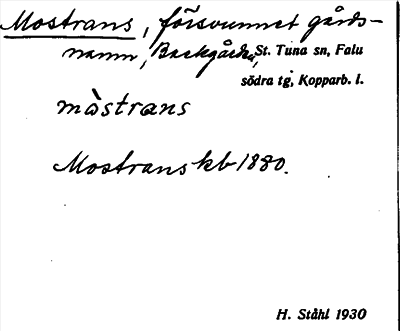 Mostrans, försvunnet gårds-
namn, Backgården, St. Tuna sn, Falu
södra tg, Kopparb. l.
mòstrans
Mostrans kb 1880.
H. Ståhl 1930